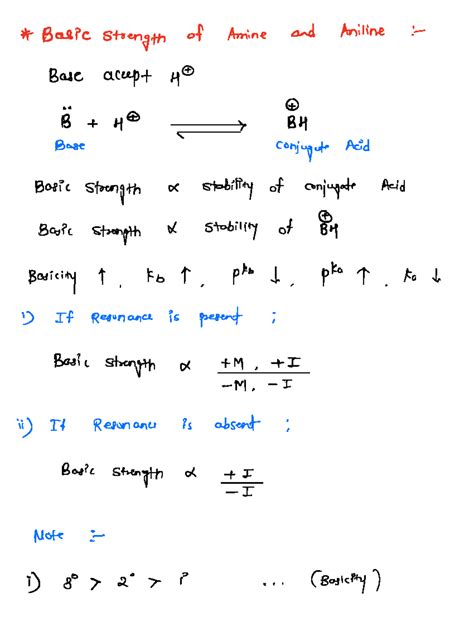 * Basic strength of Amine and Aniline :-
Base accept H⊕
B̈ + H⊕ ⇌ B⊕H
Base Conjugate Acid
Basic strength ∝ stability of conjugate Acid
Basic strength ∝ stability of B⊕H
Basicity ↑ , Kb ↑ , pKb ↓ , pKa ↑ , Ka ↓
i) If Resonance is present ;
Basic strength ∝ +M , +I / -M , -I
ii) If Resonance is absent ;
Basic strength ∝ +I / -I
Note :-
i) 3° > 2° > 1° ... (Basicity)